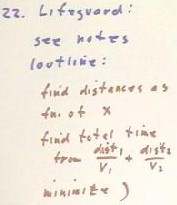 22. Lifeguard:
see notes
(outline:
find distances as
fn. of x
find total time
from dist₁/V₁ + dist₂/V₂
minimize)